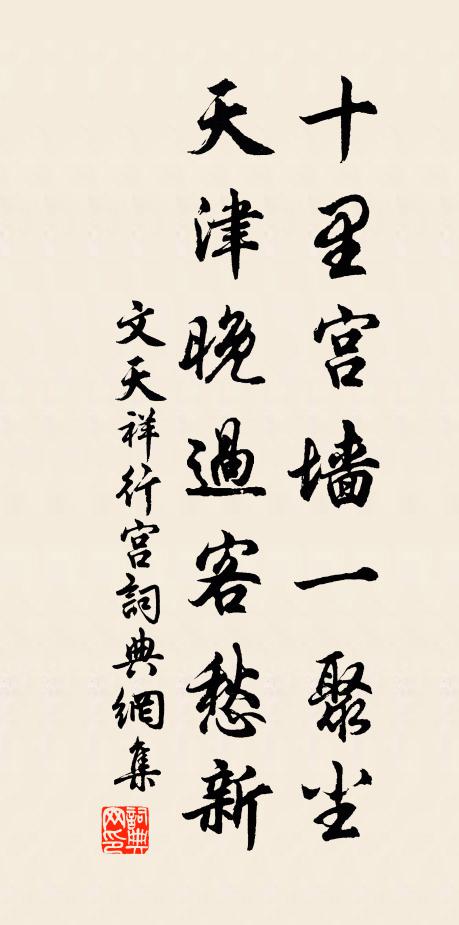 十里宫墙一聚尘
天津晚過客愁新
文天祥行宫詞典網集
詞典网印